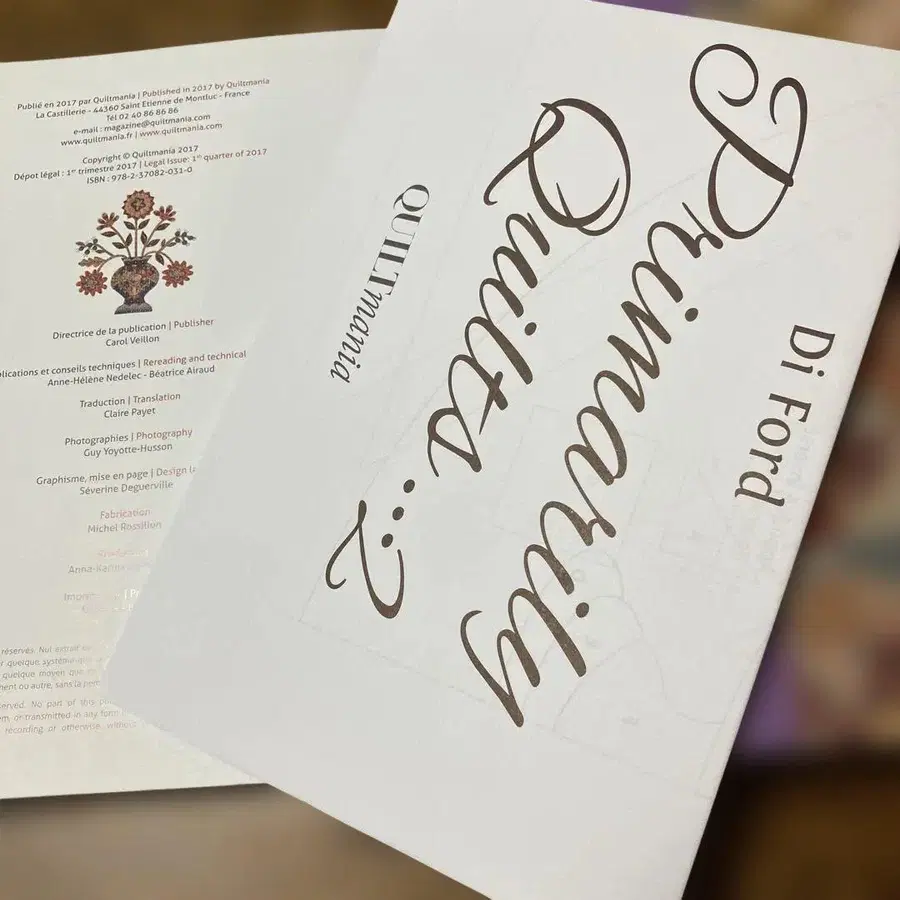 Publié en 2017 par Quiltmania | Published in 2017 by Quiltmania
La Castillerie - 44360 Saint Etienne de Montluc - France
Tél 02 40 86 86 86
e-mail : magazine@quiltmania.com
www.quiltmania.fr | www.quiltmania.com
Copyright © Quiltmania 2017
Dépot légal : 1er trimestre 2017 | Legal Issue: 1st quarter of 2017
ISBN : 978-2-37082-031-0
Directrice de la publication | Publisher
Carol Veillon
et conseils techniques | Rereading and technical
Anne-Hélène Nedelec - Béatrice Airaud
Traduction | Translation
Claire Payet
Photographies | Photography
Guy Yoyotte-Husson
Graphisme, mise en page | Design
Séverine Deguerville
Fabrication
Michel
réservés. Nul extrait
quelque moyen que
ou autre, sans la
No part of this
or transmitted in any form
recording or otherwise, without
Di Ford
Primarily
Quilts...2
QUILTmania